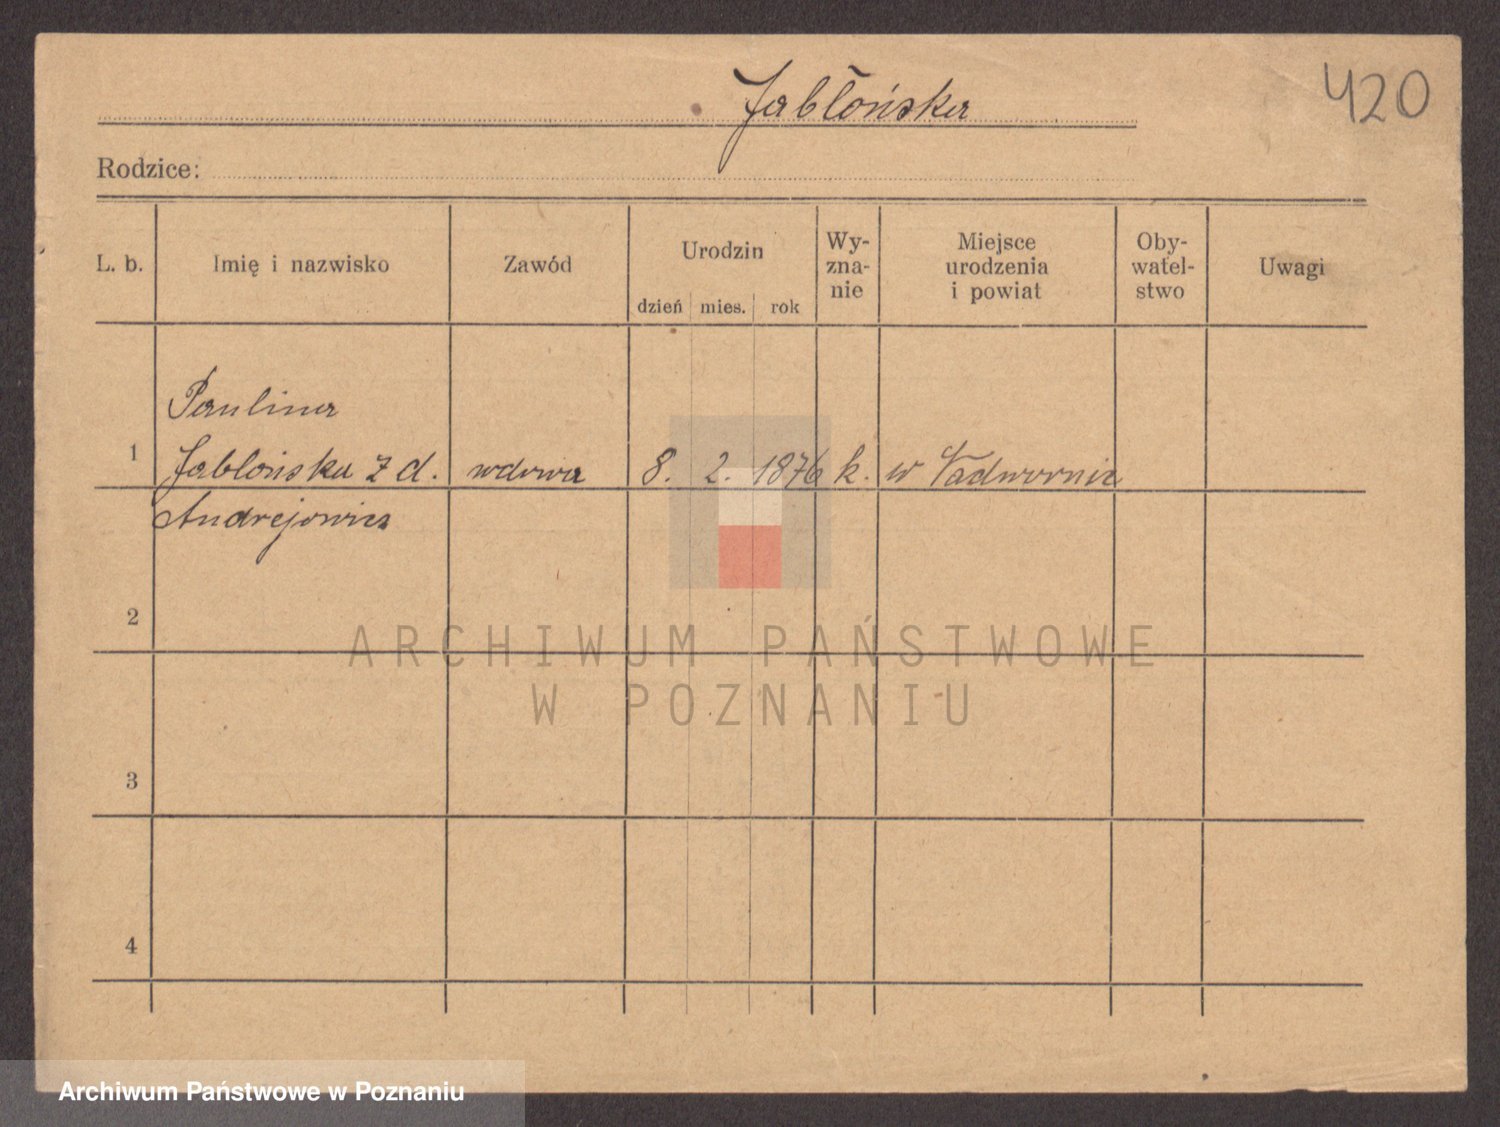 Jabłońska
420
Rodzice:
L. b. Imię i nazwisko Zawód Urodzin dzień mies. rok Wy-zna-nie Miejsce urodzenia i powiat Oby-watel-stwo Uwagi
Paulina
1 Jabłońska z d. wdowa 8. 2. 1876 k. w Nadwornie
Andrejowicz
2
ARCHIWUM PAŃSTWOWE
W POZNANIU
3
4
Archiwum Państwowe w Poznaniu